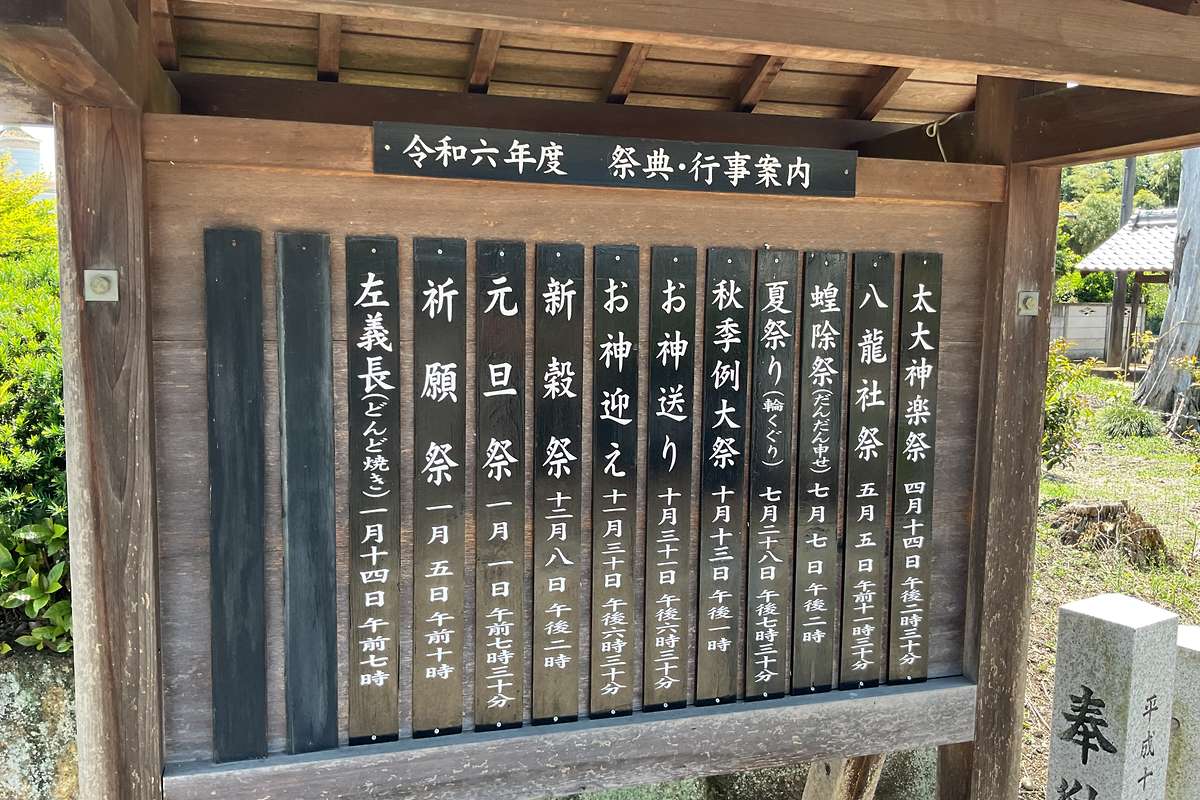 令和六年度 祭典・行事案内
太大神楽祭 四月十四日 午後二時三十分
八龍社祭 五月五日 午前十一時三十分
蝗除祭(だんだん申せ) 七月七日 午後二時
夏祭り(輪くぐり) 七月二十八日 午後七時三十分
秋季例大祭 十月十三日 午後一時
お神送り 十月三十一日 午後六時三十分
お神迎え 十一月三十日 午後六時三十分
新穀祭 十二月八日 午後二時
元旦祭 一月一日 午前七時三十分
祈願祭 一月五日 午前十時
左義長(どんど焼き) 一月十四日 午前七時
奉
平成十